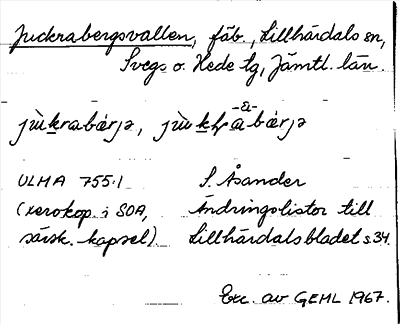 Juckrabergsvallen, fäb., Lillhärdals sn,
Svegs o. Hede tg, Jämtl. län.
-a-
jùkrabærjə, jùkrabærjə
ULMA 755:1 S. Åsander
(xerokop. i SOA, Ändringslistor till
särsk. kapsel). Lillhärdalsbladet s 34.
Exc. av GEHL 1967.